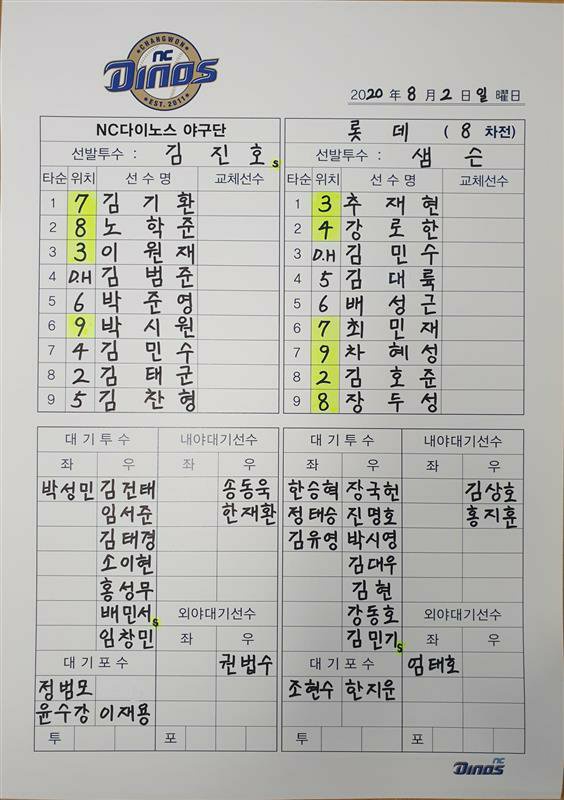 CHANGWON
NC
DINOS
EST. 2011
2020 年 8 月 2 日 일 曜日
NC다이노스 야구단
선발투수 : 김 진 호 S
타순 위치 선 수 명 교체선수
1 7 김 기 환
2 8 노 학 준
3 3 이 원 재
4 D.H 김 범 준
5 6 박 준 영
6 9 박 시 원
7 4 김 민 수
8 2 김 태 군
9 5 김 찬 형
롯 데 ( 8 차전)
선발투수 : 샘 슨
타순 위치 선 수 명 교체선수
1 3 추 재 현
2 4 강 로 한
3 D.H 김 민 수
4 5 김 대 륙
5 6 배 성 근
6 7 최 민 재
7 9 차 혜 성
8 2 김 호 준
9 8 장 두 성
대 기 투 수 내야대기선수
좌 우 좌 우
박성민 김건태 송동욱
임서준 한재환
김태경
소이현
홍성무
배민서 S 외야대기선수
임창민 좌 우
대 기 포 수 권법수
정범모
윤수강 이재용
투 포
대 기 투 수 내야대기선수
좌 우 좌 우
한승혁 장국헌 김상호
정태승 진명호 홍지훈
김유영 박시영
김대우
김 현
강동호 외야대기선수
김민기 S 좌 우
대 기 포 수 엄태호
조현수 한지운
투 포
NC
DINOS